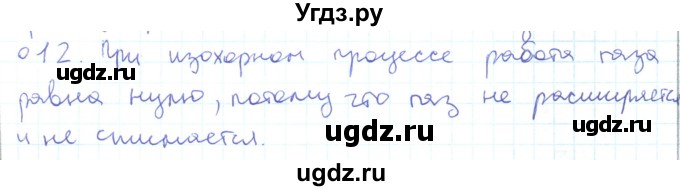 Угдз.ру
о12. При изохорном процессе работа газа
ugdz.ru ugdz.ru
равна нулю, потому что газ не расширяется
ugdz.ru ugdz.ru
и не сжимается.
ugdz.ru